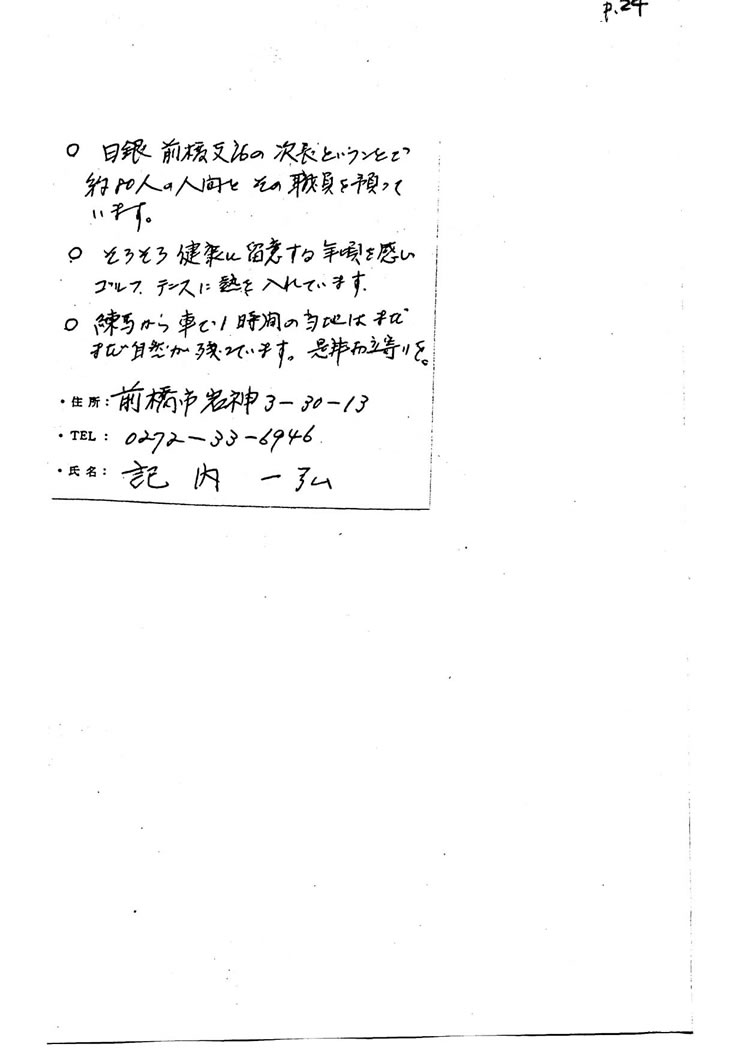 p.24
○ 日銀 前橋支店の次長ということで
約80人の人間とその職員を預って
います。
○ そろそろ健康に留意する年頃を感い
ゴルフ、テニスに熱を入れています。
○ 練馬から車で1時間の当地はまだ
まだ自然が残っています。是非お立寄りを。
・住所：前橋市岩神3-30-13
・TEL：0272-33-6946
・氏名：記内 一弘